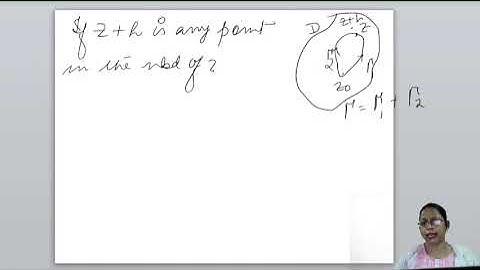 If z+h is any point
in the nbd of z
D
z+h
z
Γ₂
Γ₁
z0
Γ = Γ₁ + Γ₂